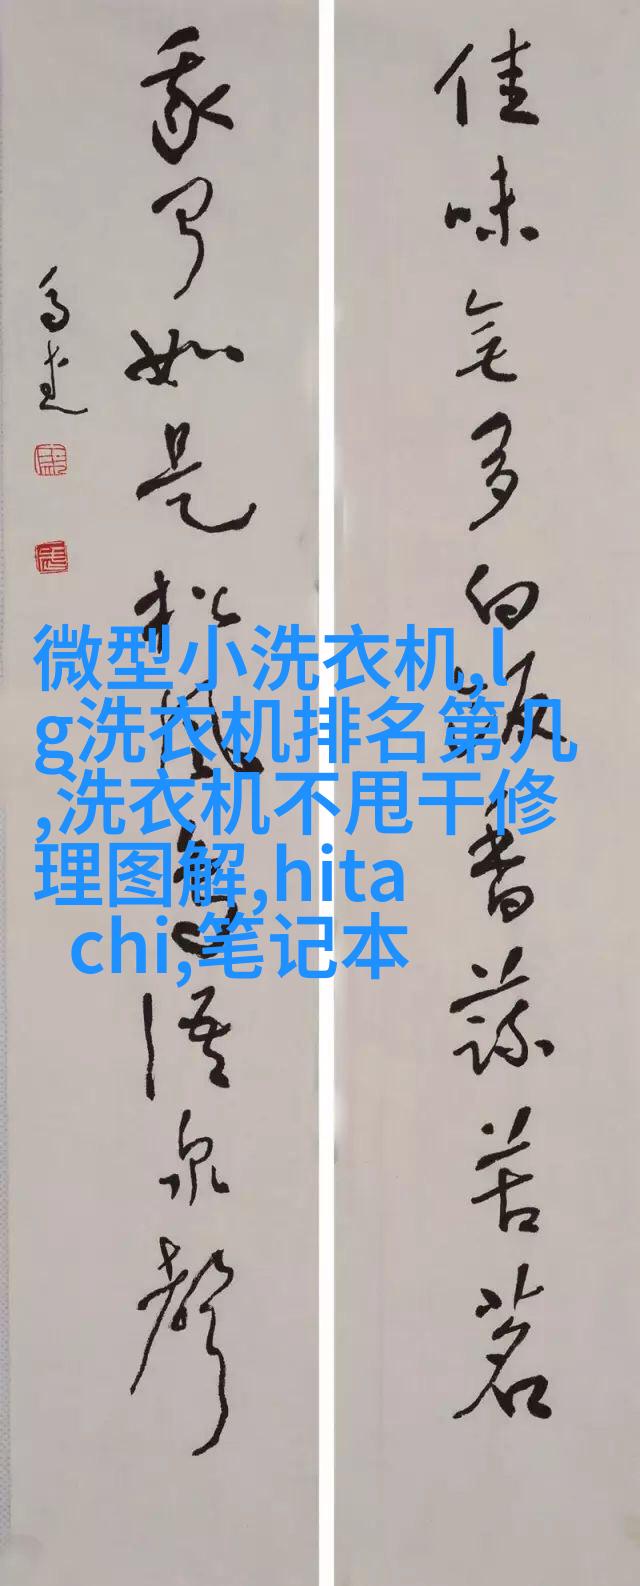 佳味無多白飯香蔬苦茗
我聞如是松風鳥語泉聲
微型小洗衣机,l
g洗衣机排名第几
,洗衣机不甩干修
理图解,hita
chi,笔记本